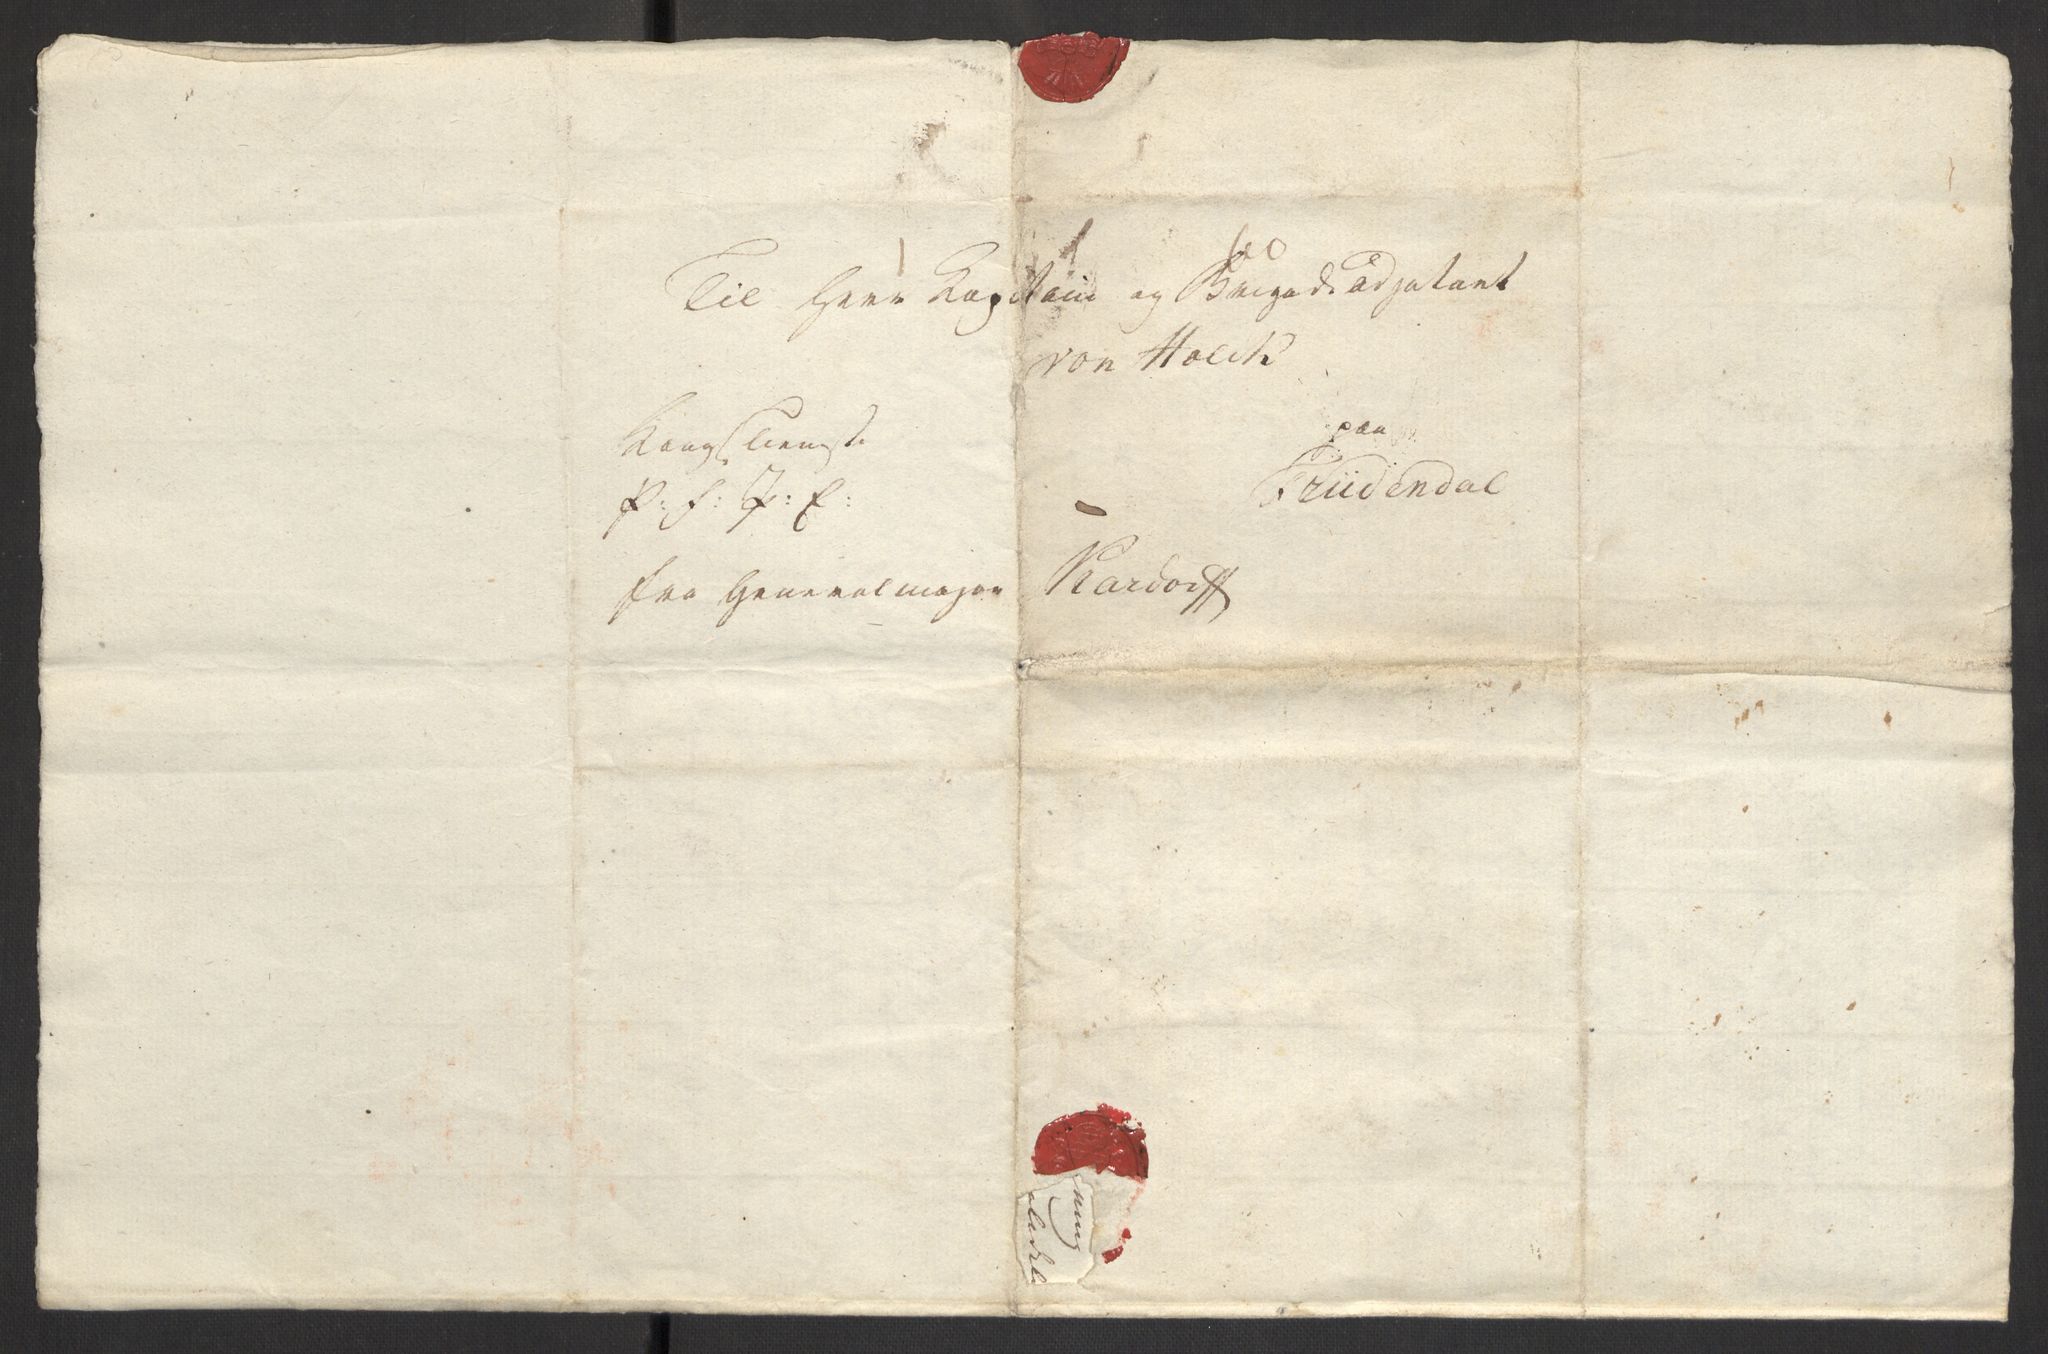 Til Herr Kapitain og Brigadeadjutant
von Holck
paa
Früdendal
Kongs Tienest
P: S: T: E:
fra Generalmajor Kardorff